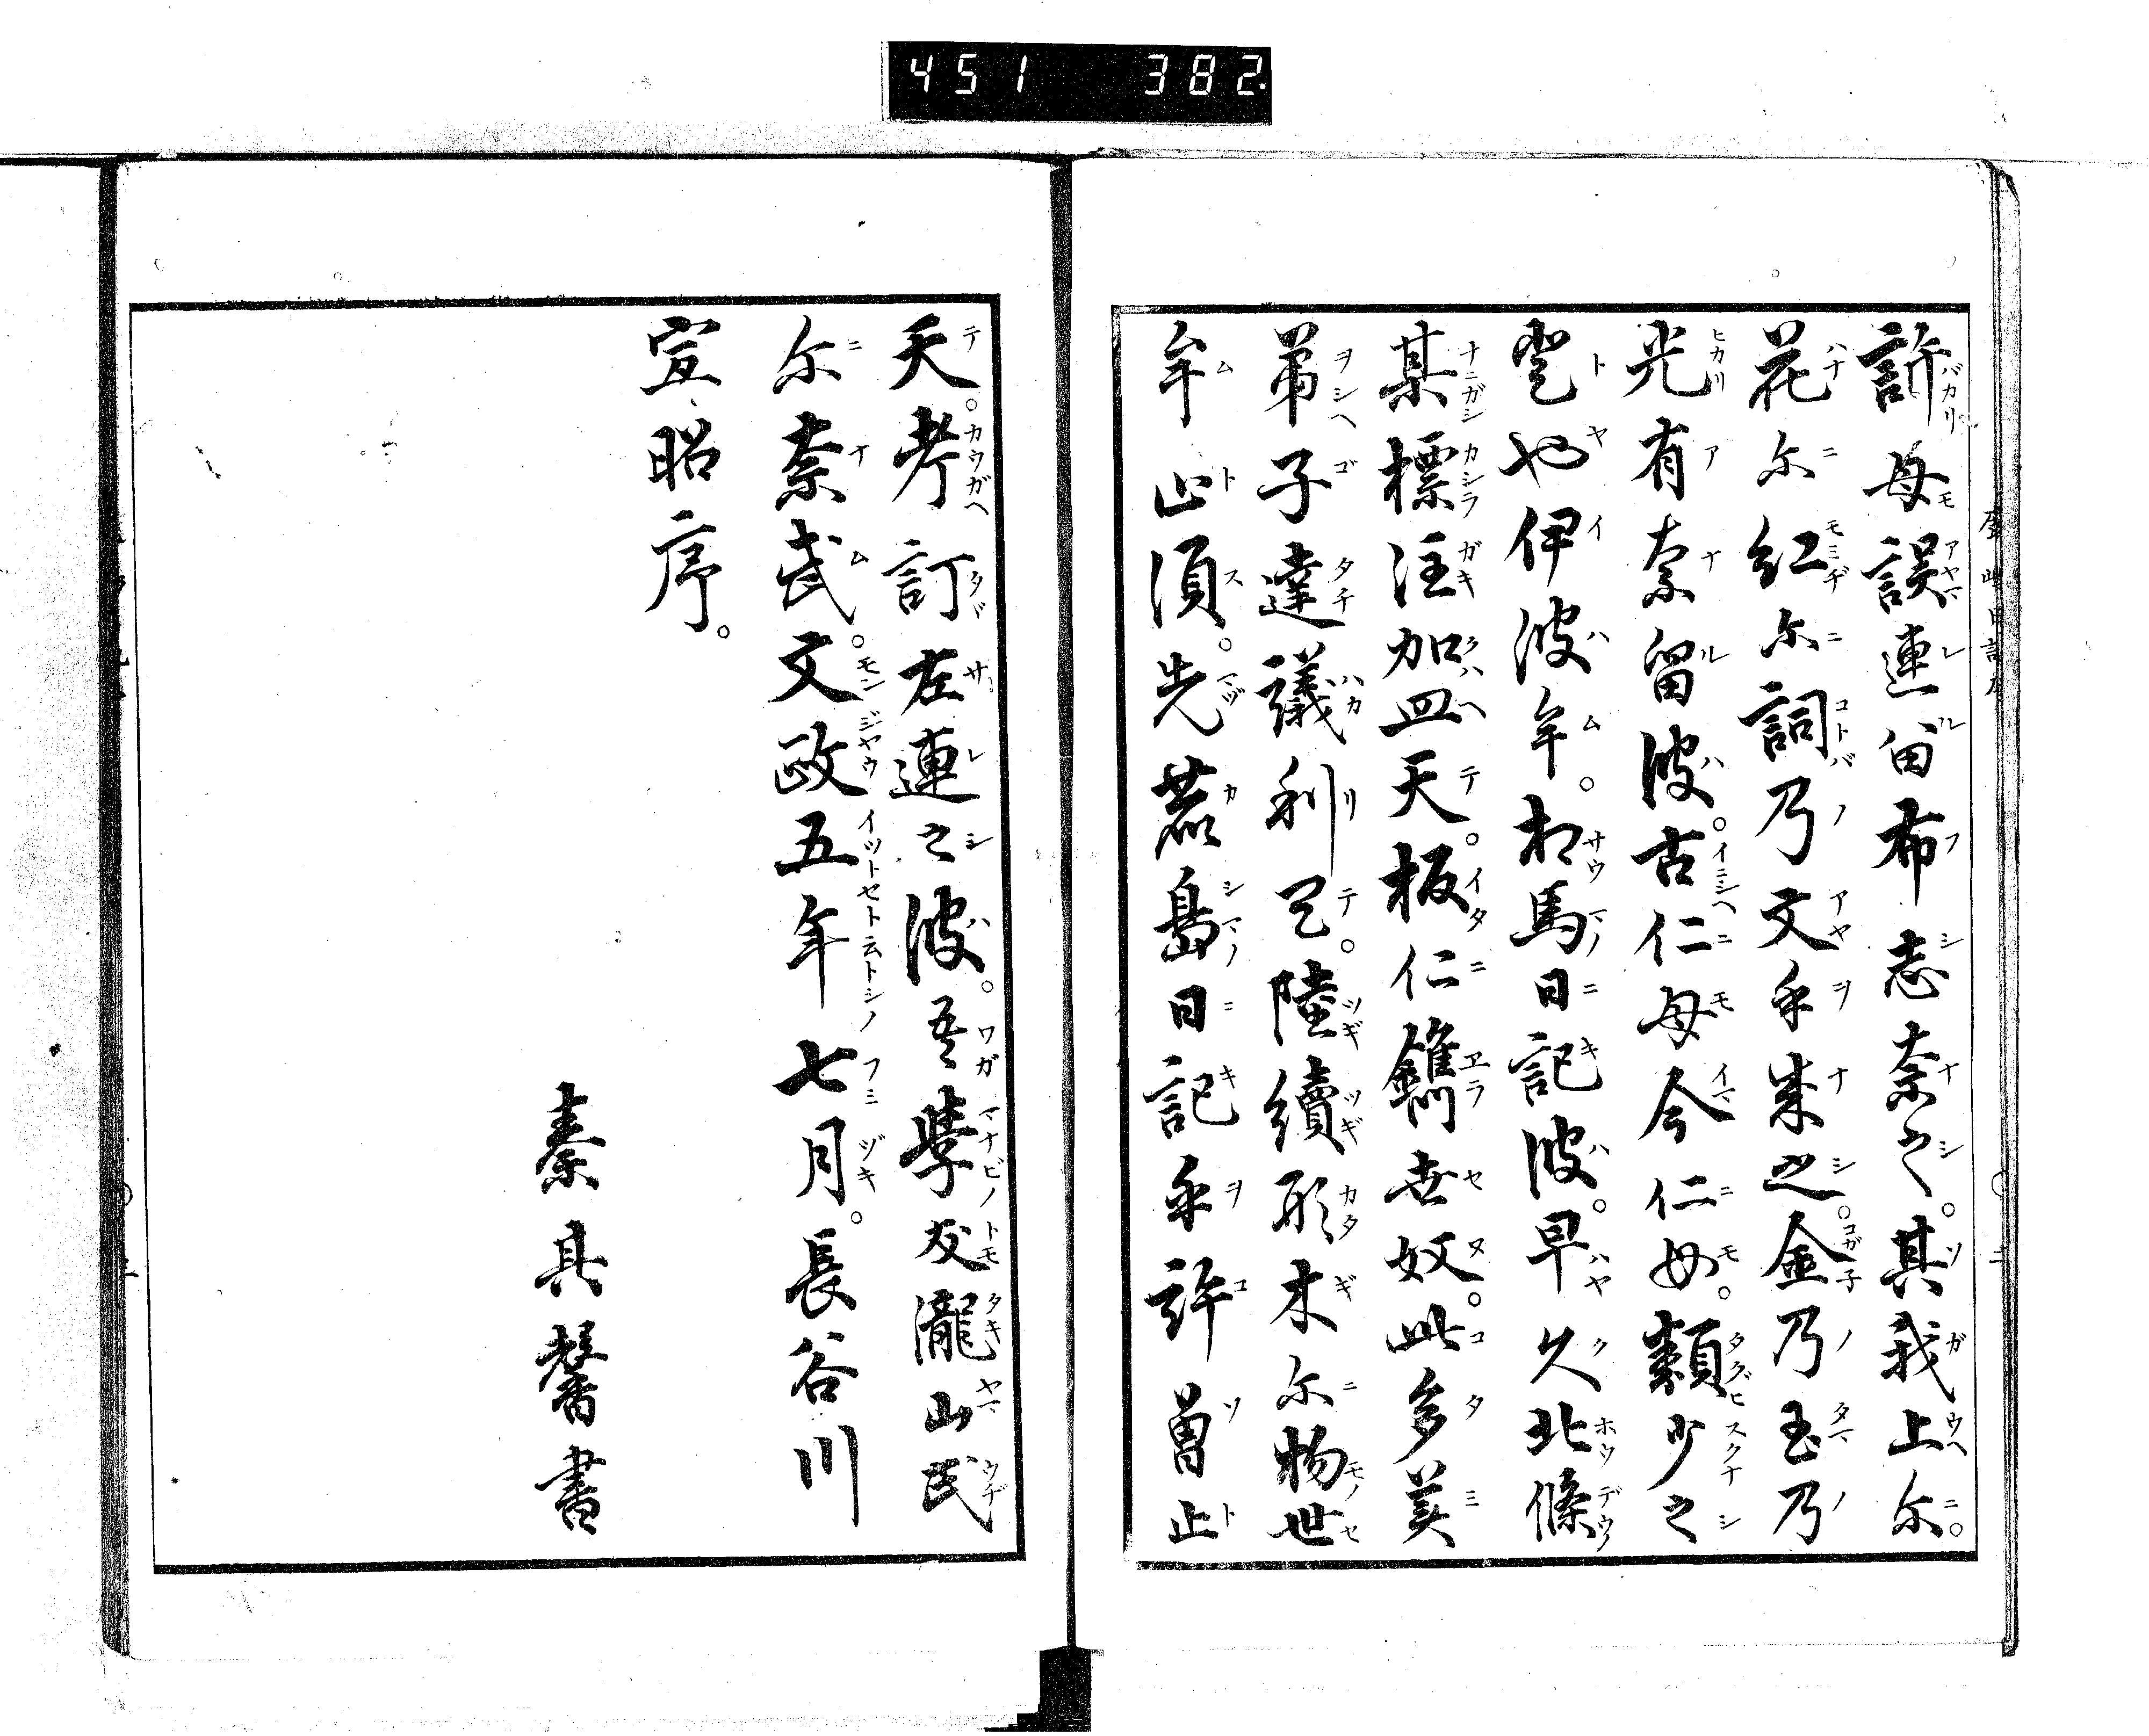 451 382.
許母誤連留布志奈之。其我上尓。
花尓紅尓詞乃文乎業之。金乃玉乃
光有奈留波。古仁母今仁母。類少之
登也伊波牟。相馬日記波。早久北條
某標注加皿天。板仁鐫世奴。此多美
弟子達議利弖。陸續形木尓物世
牟止須。先鹿島日記乎許曽止
天。考訂左連之波。吾學友瀧山氏
尓奈武。文政五年七月。長谷川
宣昭序。
秦其馨書